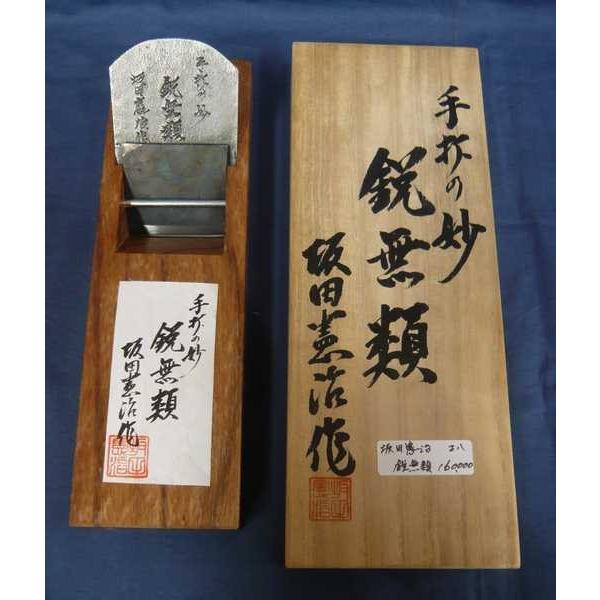 手打の妙
鋭無類
坂田憲治作
手打の妙
鋭無類
坂田憲治作
手打の妙
鋭無類
坂田憲治作
坂田憲治 寸八
鋭無類 160,000